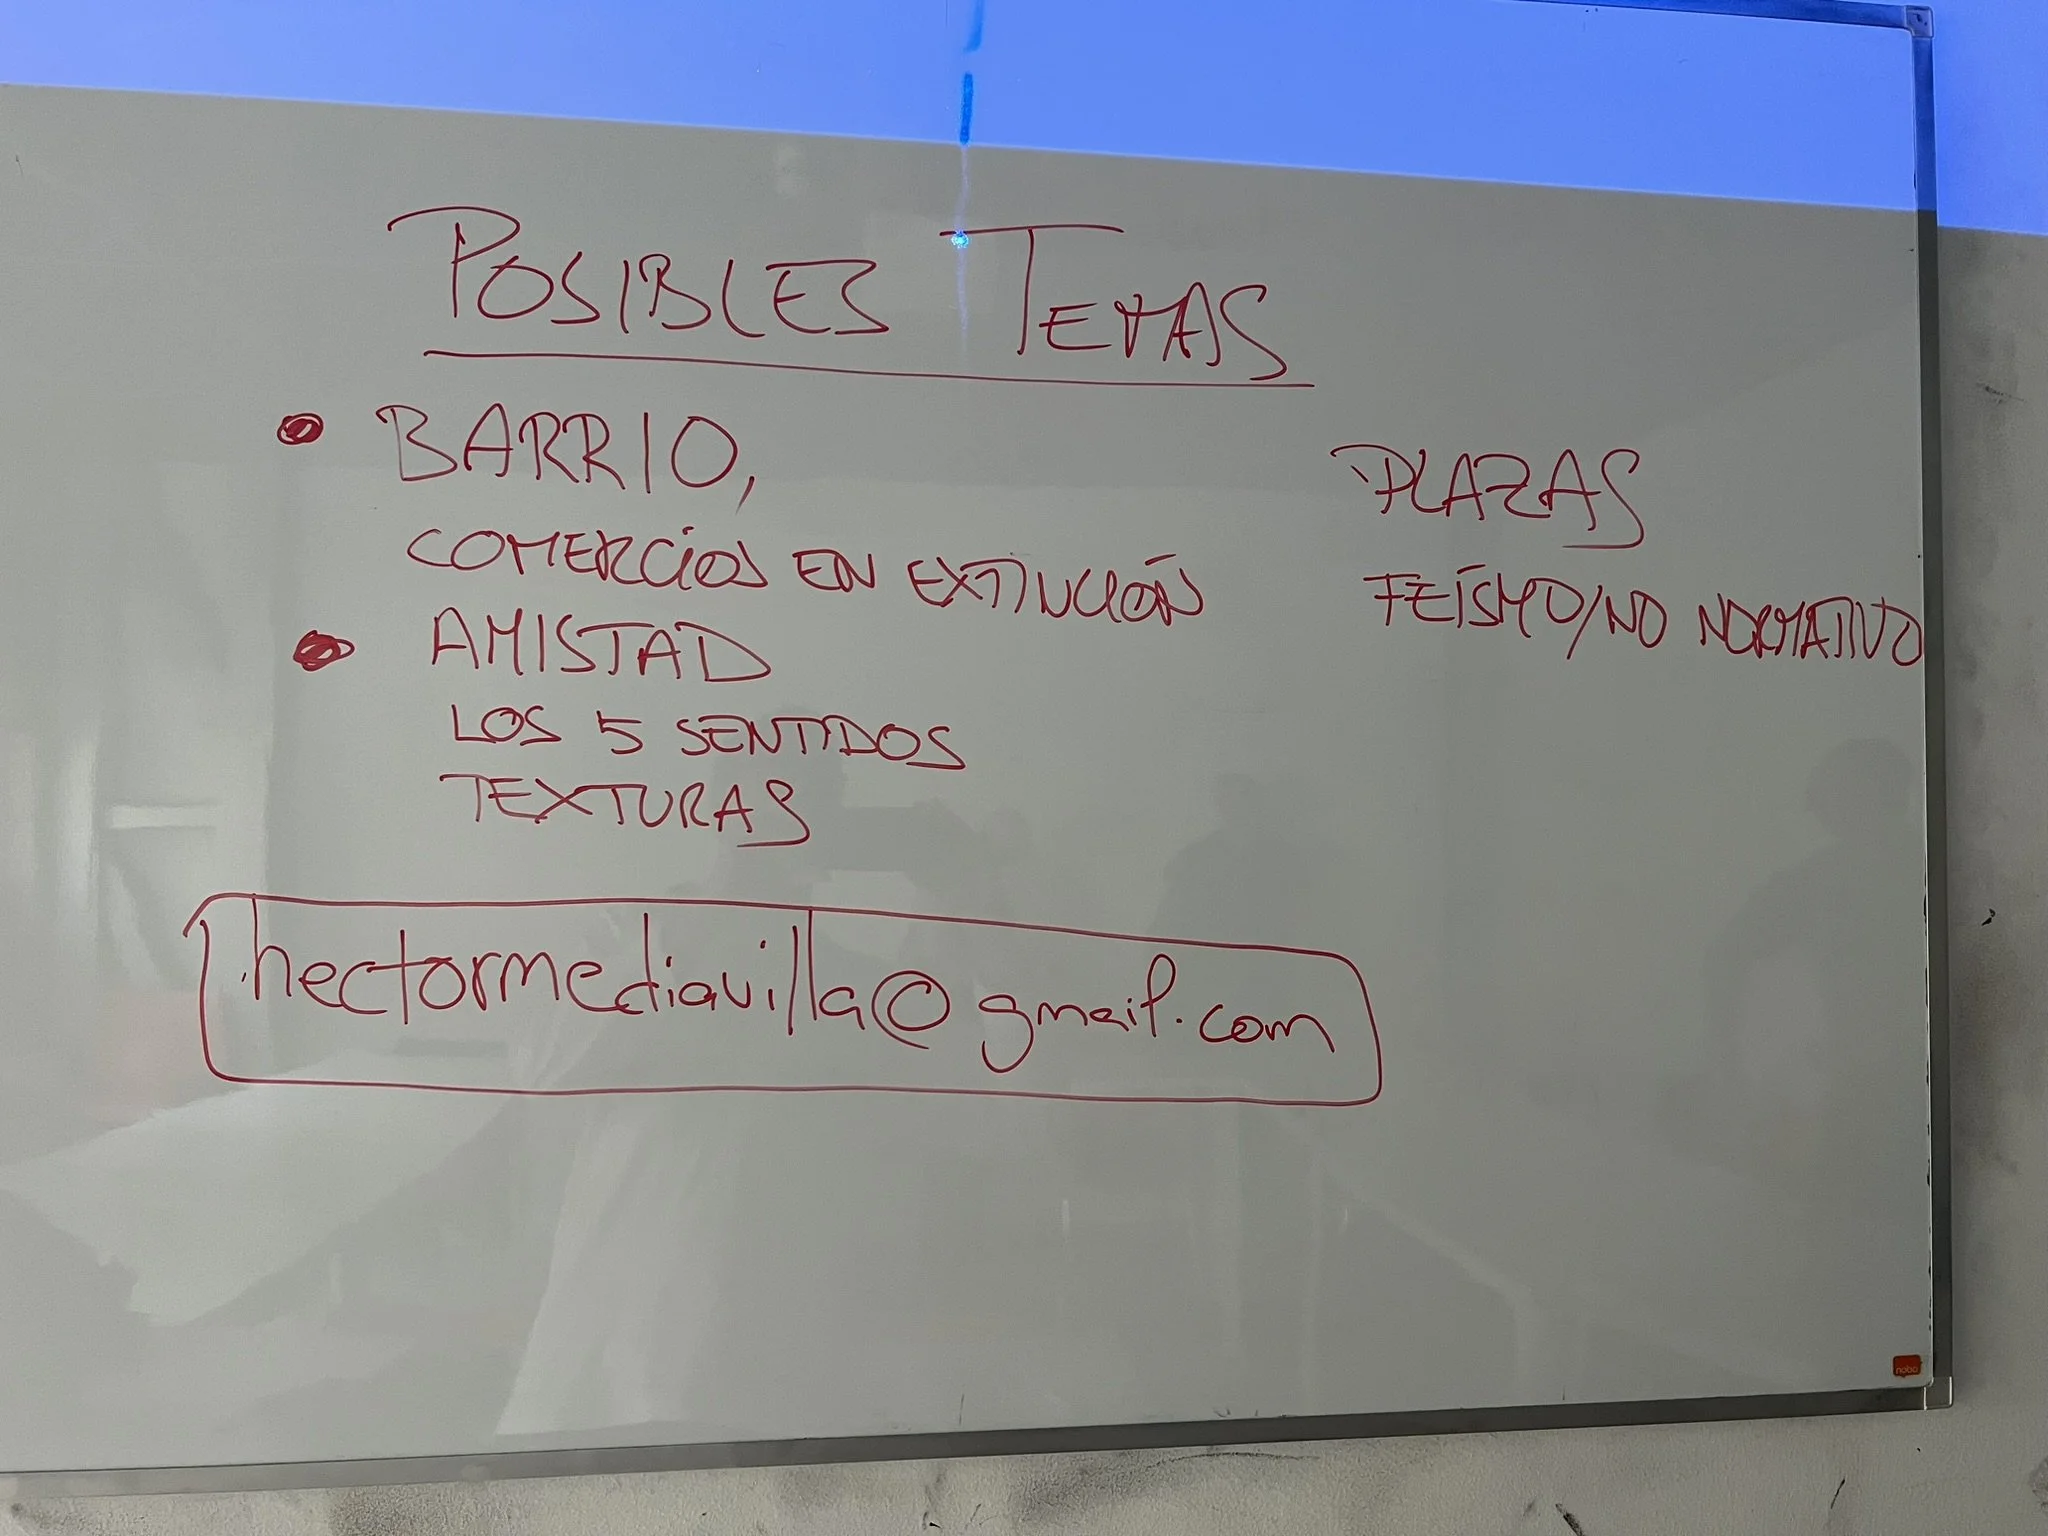 POSIBLES TEMAS
• BARRIO,
COMERCIOS EN EXTINCIÓN
• AMISTAD
LOS 5 SENTIDOS
TEXTURAS
PLAZAS
FEÍSMO/NO NORMATIVO
hectormediavilla@gmail.com
nobo